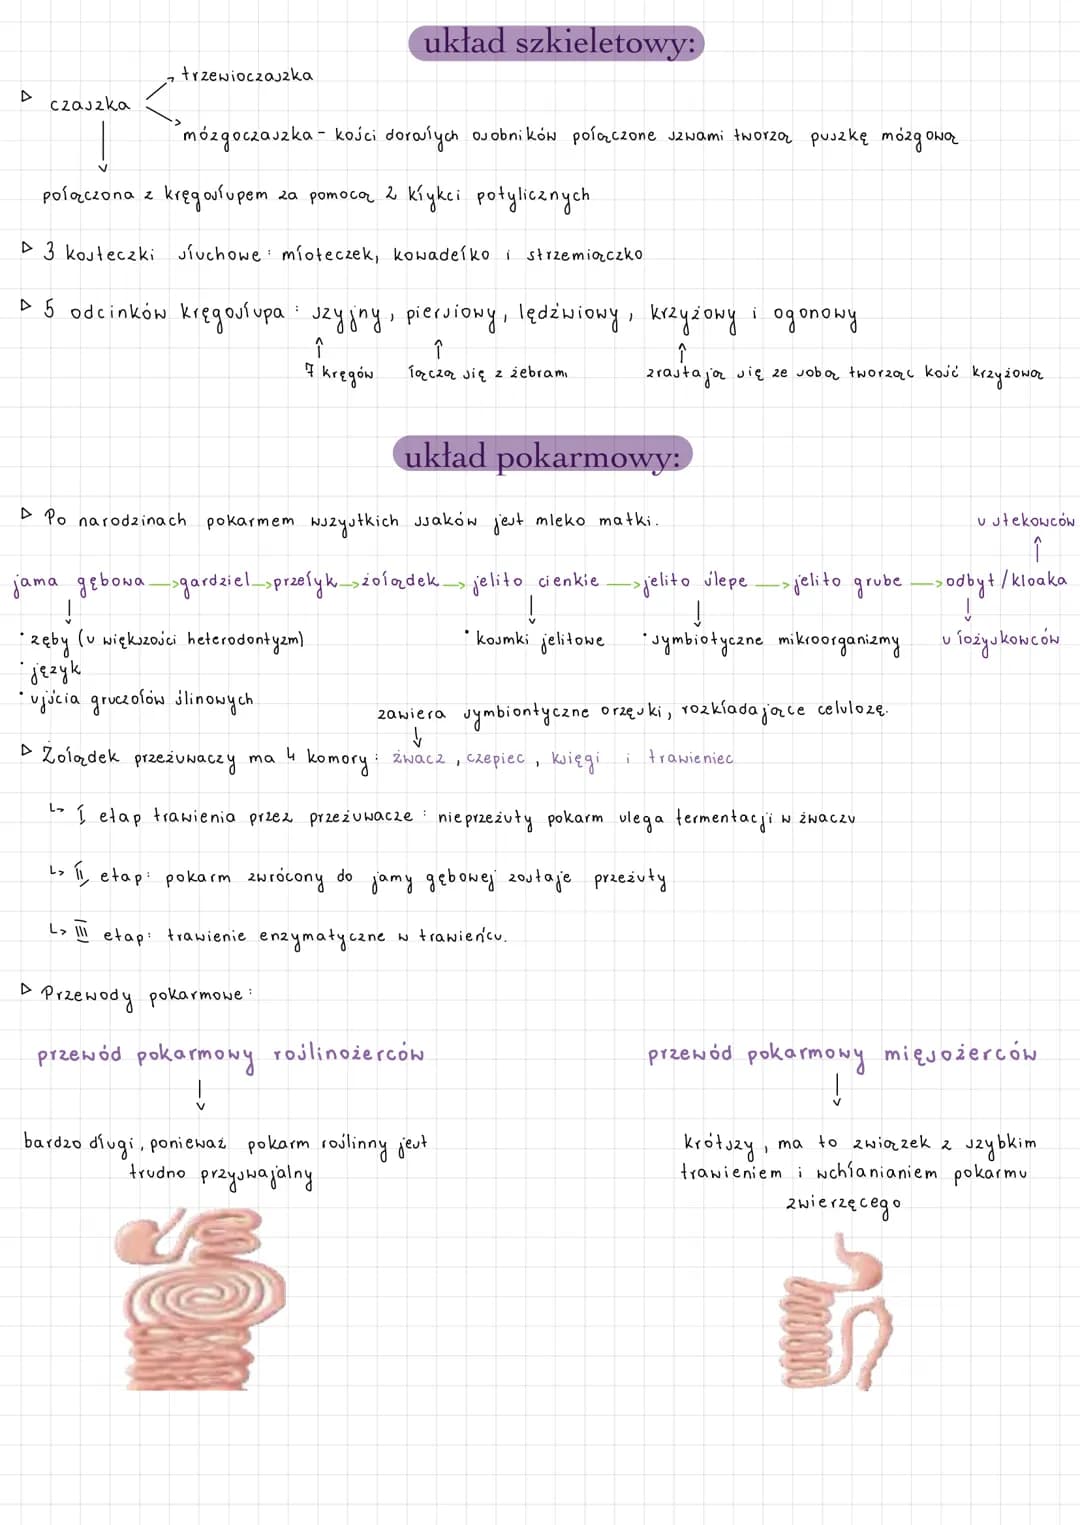 układ szkieletowy:
trzewioczaszka
czaszka
mózgoczaszka - kości dorosłych osobników połączone szwami tworzą puszkę mózgową
połączona z kręgosłupem za pomocą 2 kłykci potylicznych
3 kosteczki słuchowe: młoteczek, kowadełko i strzemiączko
5 odcinków kręgosłupa: szyjny, piersiowy, lędźwiowy, krzyżowy i ogonowy
7 kręgów łączą się z żebrami zrastają się ze sobą tworząc kość krzyżową
układ pokarmowy:
Po narodzinach pokarmem wszystkich ssaków jest mleko matki.
u stekowców
jama gębowa → gardziel → przełyk → żołądek → jelito cienkie → jelito ślepe → jelito grube → odbyt / kloaka
• zęby (u większości heterodontyzm) • kosmki jelitowe • symbiotyczne mikroorganizmy u łożyskowców
• język
• ujścia gruczołów ślinowych
zawiera symbiontyczne orzęski, rozkładające celulozę.
Żołądek przeżuwaczy ma 4 komory: żwacz, czepiec, księgi i trawieniec
↳ I etap trawienia przez przeżuwacze: nieprzeżuty pokarm ulega fermentacji w żwaczu
↳ II etap: pokarm zwrócony do jamy gębowej zostaje przeżuty
↳ III etap: trawienie enzymatyczne w trawieńcu.
Przewody pokarmowe:
przewód pokarmowy roślinożerców przewód pokarmowy mięsożerców
bardzo długi, ponieważ pokarm roślinny jest krótszy, ma to związek z szybkim
trudno przyswajalny trawieniem i wchłanianiem pokarmu
zwierzęcego